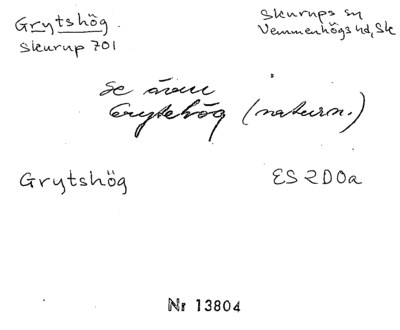 Grytshög
Skurup 701
Skurups sn
Vemmenhögs hd, Sk
Se även
Grytehög (naturn.)
Grytshög
ES 2D0a
Nr 13804